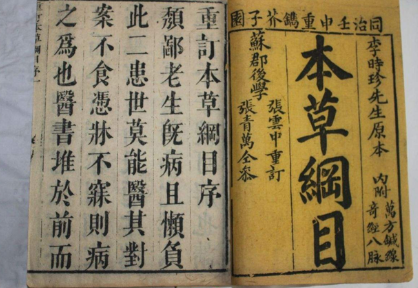 同治壬申重鐫芥子園
李時珍先生原本
內附
萬方鍼線
奇經八脉
本草綱目
張雲中重訂
張青萬全參
蘇郡後學
重訂本草綱目序
頽鄙老生旣病且懶負
此二患世莫能醫其對
案不食憑牀不寐則病
之爲也醫書堆於前而